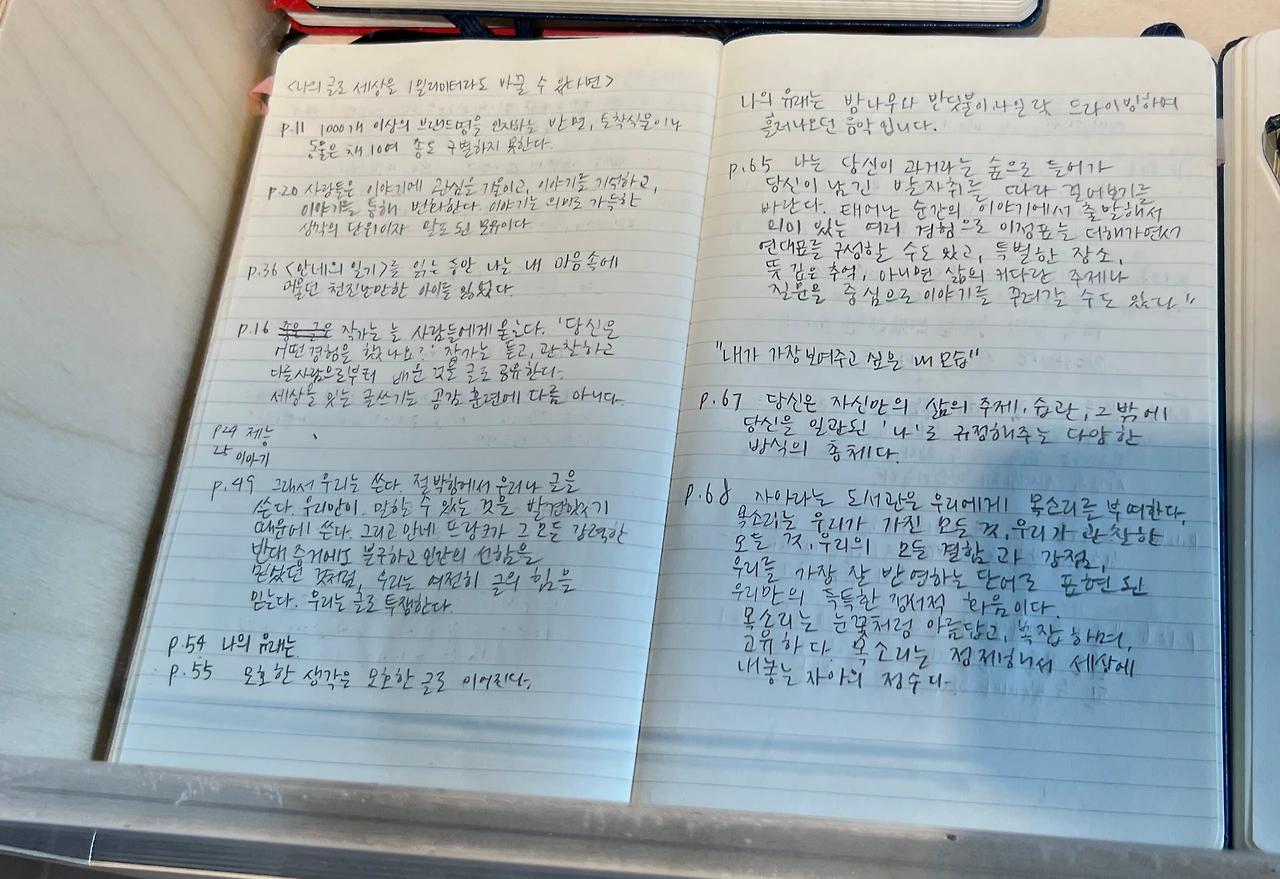 <나의 글로 세상을 1밀리미터라도 바꿀 수 있다면>
p.11 1000개 이상의 브랜드명을 인지하는 반면, 토착식물이나
동물은 채 10여 종도 구별하지 못한다.
p.20 사람들은 이야기에 관심을 기울이고, 이야기를 기억하고,
이야기를 통해 변화한다. 이야기는 의미로 가득한
생각의 단위이자 말로 된 모유이다
p.36 <안네의 일기>를 읽는 동안 나는 내 마음속에
머물던 천진난만한 아이를 잃었다.
p.16 좋은 글은 작가는 늘 사람들에게 묻는다. '당신은
어떤 경험을 했나요?' 작가는 듣고, 관찰하고
다른사람으로부터 배운 것을 글로 공유한다.
세상을 잇는 글쓰기는 공감 훈련에 다름 아니다.
p24 재능
나 이야기
p.49 그래서 우리는 쓴다. 절박함에서 우러나 글을
쓴다. 우리만이 말할 수 있는 것을 발견했기
때문에 쓴다. 그리고 안네 프랑크가 그 모든 강력한
반대 증거에도 불구하고 인간의 선함을
믿었던 것처럼, 우리는 여전히 글의 힘을
믿는다. 우리는 글로 투쟁한다.
p.54 나의 유래는
p.55 모호한 생각은 모호한 글로 이어진다.
나의 유래는 밤나무와 반딧불이, 드라이빙하며
흘러나오던 음악입니다.
p.65 나는 당신이 과거라는 숲으로 들어가
당신이 남긴 발자취를 따라 걸어보기를
바란다. 태어난 순간의 이야기에서 출발해서
의미 있는 여러 경험으로 이정표를 더해가면서
연대표를 구성할 수도 있고, 특별한 장소,
뜻 깊은 추억, 아니면 삶의 커다란 주제나
질문을 중심으로 이야기를 꾸려갈 수도 있다."
"내가 가장 보여주고 싶은 내 모습"
p.67 당신은 자신만의 삶의 주제, 습관, 그 밖에
당신을 일관된 '나'로 규정해주는 다양한
방식의 총체다.
p.68 자아라는 도서관은 우리에게 목소리를 부여한다.
목소리는 우리가 가진 모든 것, 우리가 관찰한
모든 것, 우리의 모든 결함과 강점,
우리를 가장 잘 반영하는 단어로 표현된
우리만의 독특한 정서적 화음이다.
목소리는 눈꽃처럼 아름답고, 복잡하며,
고유하다. 목소리는 정제해서 세상에
내놓는 자아의 정수다.